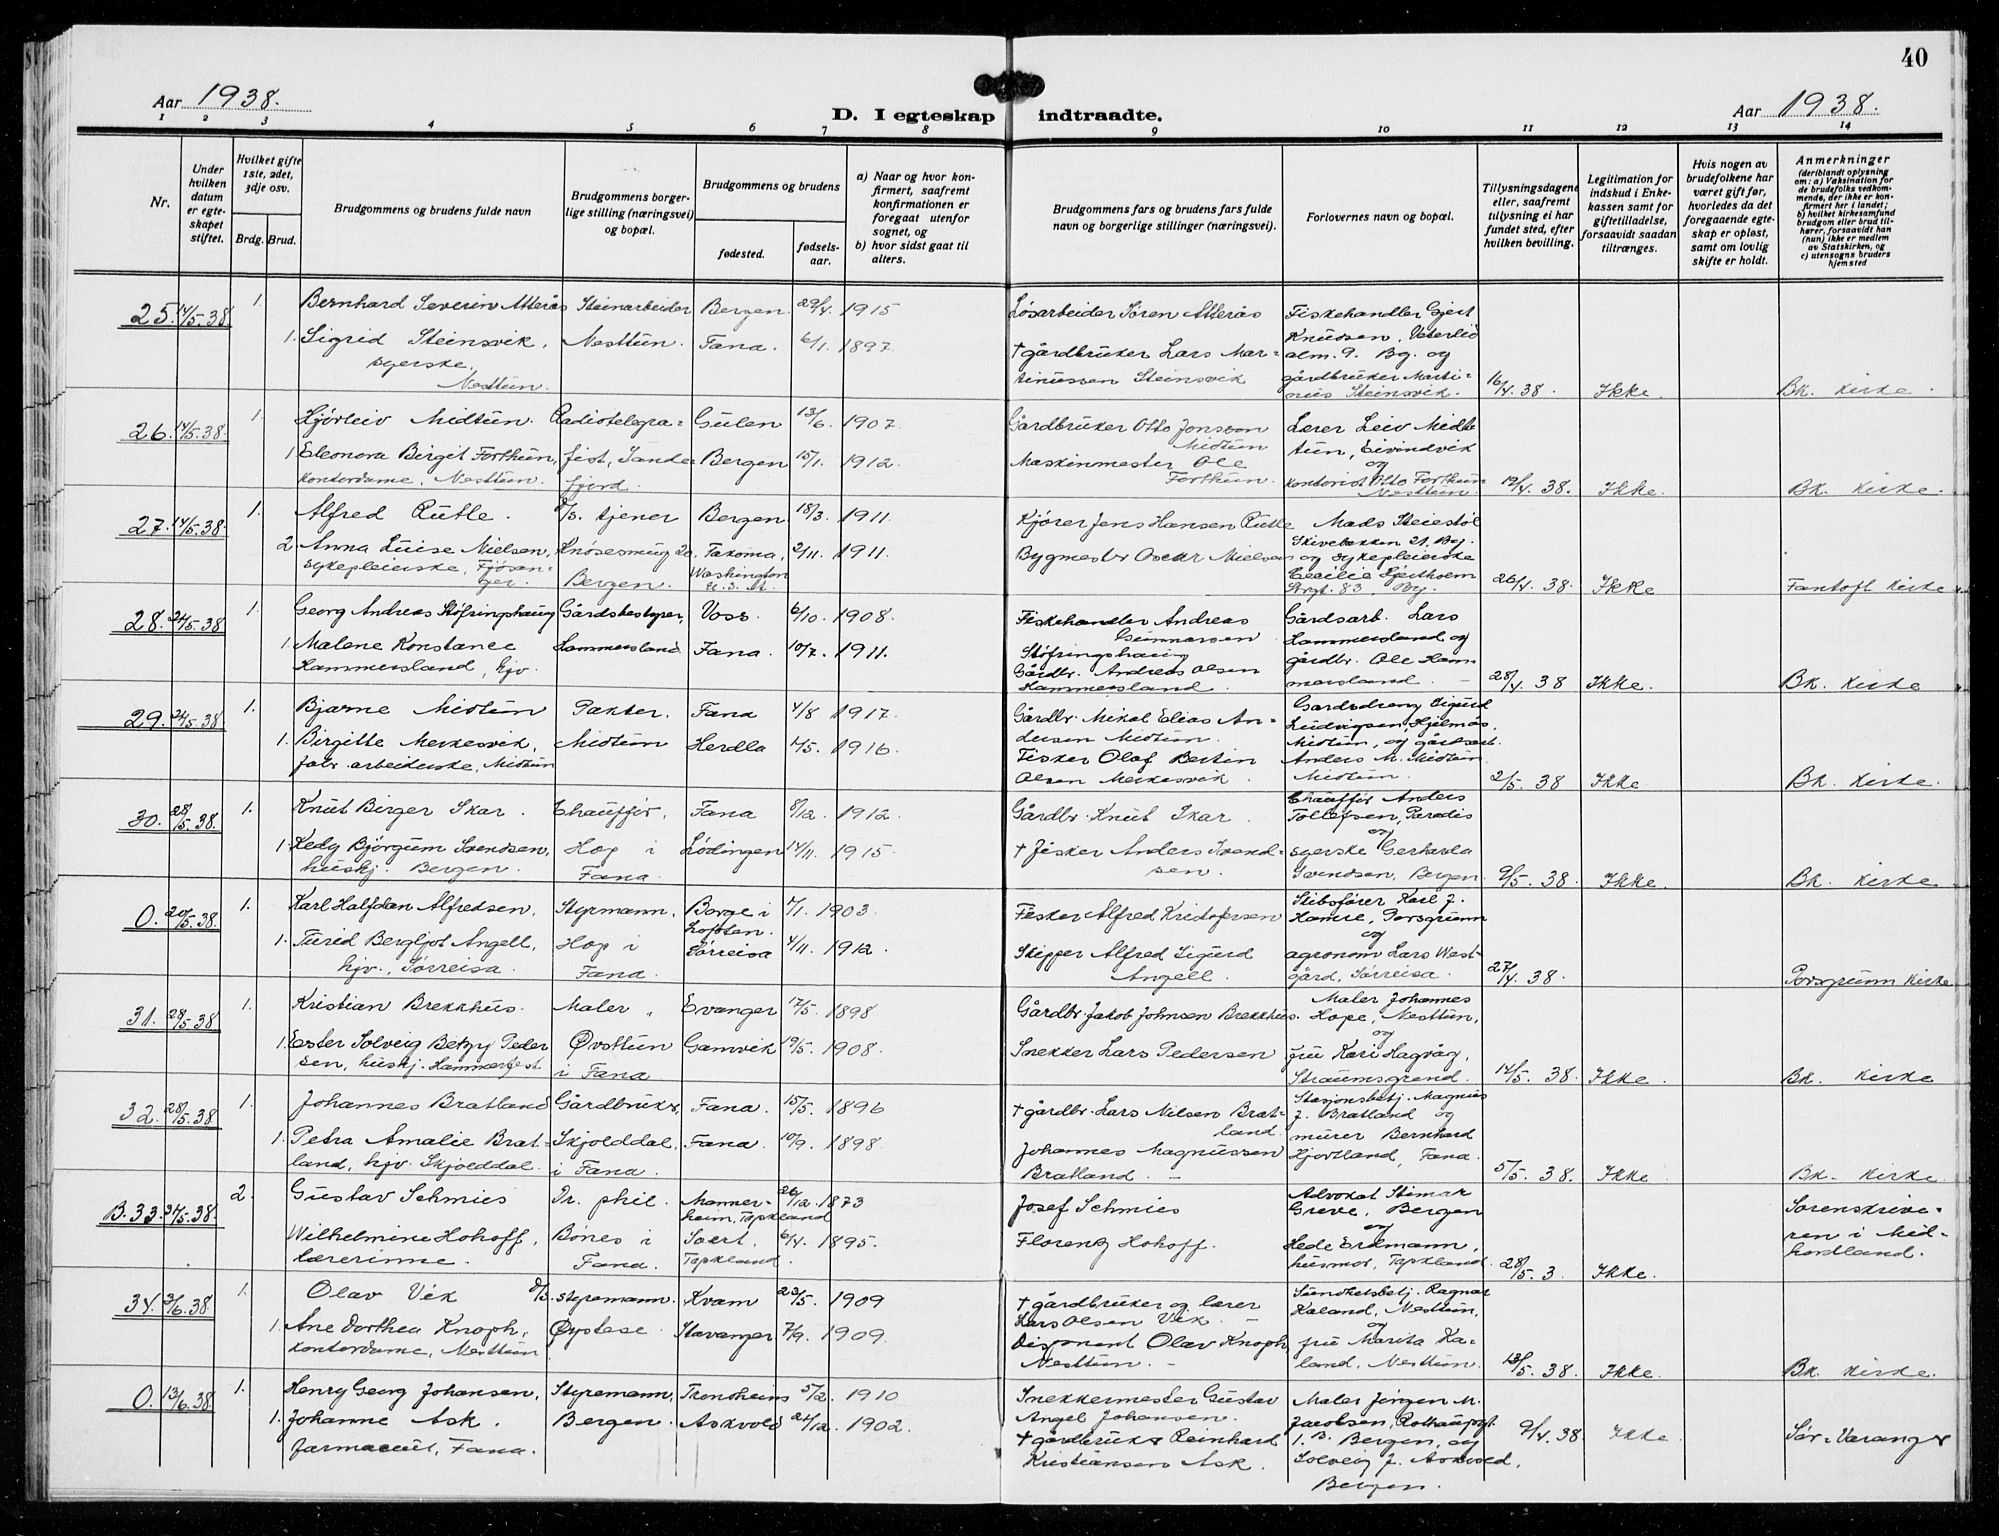 40
Aar 1938.
D. I egteskap indtraadte.
Aar 1938.
1 2 3 4 5 6 7 8 9 10 11 12 13 14
Nr.
Under hvilken datum er egteskapet stiftet.
Hvilket gifte 1ste, 2det, 3dje osv.
Brdg. Brud.
Brudgommens og brudens fulde navn
Brudgommens borgerlige stilling (næringsvei) og bopæl.
Brudgommens og brudens
fødested.
fødselsaar.
a) Naar og hvor konfirmert, saafremt konfirmationen er foregaat utenfor sognet, og
b) hvor sidst gaat til alters.
Brudgommens fars og brudens fars fulde navn og borgerlige stillinger (næringsvei).
Forlovernes navn og bopæl.
Tillysningsdagene eller, saafremt tillysning ei har fundet sted, efter hvilken bevilling.
Legitimation for indskud i Enkekassen samt for giftetilladelse, forsaavidt saadan tiltrænges.
Hvis nogen av brudefolkene har været gift før, hvorledes da det foregaaende egteskap er opløst, samt om lovlig skifte er holdt.
Anmerkninger
(deriblandt oplysning om: a) Vaksination for de brudefolks vedkommende, der ikke er konfirmert her i landet; b) hvilket kirkesamfund brudgom eller brud tilhører, forsaavidt han (hun) ikke er medlem av Statskirken, og c) utensogns bruders hjemsted
25. 14/5.38. 1. Bernhard Severin Atterås Steinarbeider Bergen. 29/4. 1915 Løsarbeider Søren Atterås Fiskehandler Gjert
1. Sigrid Steinsvik, Nesttun. Fana. 6/1. 1897. Knudsen, Veterlid
syerske. † gårdbruker Lars Mar- alm. 9. Bg. og
Nesttun. tinussen Steinsvik gårdbruker Marti-
nius Steinsvik. 16/4.38. Ikke. Bk. kirke.
26. 14/5.38. 1. Hjørleiv Midtun. Radiotelegra- Gulen 13/6. 1907. Gårdbruker Otto Jonsson Lærer Leiv Mid-
Midtun tun, Eivindvik
1. Eleonora Birgit Forthun, fist, Sande- Bergen 15/1. 1912. Maskinmester Ole og
kontordame, Nesttun. fjord. Forthun. kontorist Otto Forthun
Nesttun. 12/4.38. Ikke. Bk. kirke.
27. 14/5.38. 1. Alfred Rutle. d/s. tjener Bergen 18/3. 1911. Kjører Jens Hansen Rutle Mads Steiestøl
Skivebakken 21, Bg.
2. Anna Luise Nielsen, Knøsesmug 20, Takoma, 2/11. 1911. Bygmester Oscar Nielsen og sykepleierske
sykepleierske, Fjøsan- Bergen. Washington Cecilie Hjertholm
ger. 83, Bg. 26/4.38. Ikke Fantoft kirke
28. 24/5.38 1. Georg Andreas Støfringshaug Gårdsbestyrer, Voss. 6/10. 1908. Fiskehandler Andreas Gårdsarb. Lars
Gunnarsen Hammersland og
1. Malene Konstance Hammersland Fana. 10/7. 1911. Støfringshaug gårdbr. Ole Ham-
Hammersland, hjv. Gårdbr. Andreas Olsen mersland.
Hammersland. 28/4.38 Ikke. Bk. kirke
29. 24/5.38 1. Bjarne Midtun Pakter. Fana 4/8 1917. Gårdbr. Mikal Elias An- Gardsdreng Sigurd
dersen Midtun. Ludvigsen, Hjelmås,
1. Birgitte Merkesvik, Midtun Herdla 1/5. 1916. Fisker Olaf Bertin Midtun, og gårdsarb.
fabr. arbeiderske, Midtun Olsen Merkesvik. Anders M. Midtun
Midtun. 2/5.38 Ikke. Bk. kirke.
30. 28/5.38. 1. Knut Birger Skar. Chauffør, Fana 8/12. 1912. Gårdbr. Knut Skar. Chauffør Anders
Tollefsen, Paradis
og
1. Hedy Bjørgum Svendsen, Hop i Lødingen 14/11. 1915. † fisker Anders Svend- syerske Gerharda
huskj. Bergen. Fana. sen. Svendsen, Bergen. 9/5.38. Ikke. Bk. kirke
0. 20/5.38. 1. Karl Halfdan Alfredsen, Styrmann, Borge i 7/1. 1903. Fisker Alfred Kristofersen Skibsfører Karl J.
Lofoten. Hamre, Porsgrunn
og
1. Turid Bergljot Angell, Hop i Sørreisa 4/11. 1912. Skipper Alfred Sigurd agronom Lars West-
hjv., Sørreisa. Fana. Angell. gård, Sørreisa. 27/4.38. Porsgrunn kirke
31. 28/5.38 1. Kristian Brekkhus. Maler Evanger 17/5. 1898 Gårdbr. Jakob Johnsen Brekkhus. Maler Johannes
Hope, Nesttun,
og
1. Ester Solveig Betzy Peder Øvsttun Gamvik 19/5. 1908. Snekker Lars Pedersen fru Kari Hagvåg,
sen, huskj. Hammerfest i Fana. Straumsgrend. 14/5.38. Ikke. Bk. kirke
32. 28/5.38 1. Johannes Bratland Gårdbruker, Fana. 15/5. 1896 † gårdbr. Lars Nilsen Brat- Stasjonsbetj. Magnus
land. J. Bratland og
1. Petra Amalie Brat- Skjolddal, Fana. 10/9. 1898. Johannes Magnussen murer Bernhard
land, hjv. Skjolddal. i Fana. Bratland. Hjortland, Fana. 5/5.38. Ikke Bk. kirke
B.33. 31/5.38. 2. Gustav Schmies Dr. phil. 26/12. 1873 Josef Schmies Advokat
Tyskland Greve, Bergen Sorenskrive-
og ren i Mid-
Wilhelmine Hohoff, Bønes i Soert. 6/4. 1895. Florenz Hohoff. Hede Erdmann, hordland.
lærerinne. Fana. Tyskland. husmor, Tyskland. 28/5.3. Ikke.
34. 3/6.38. 1. Olav Vik d/s. styrmann. Kvam 23/5. 1909 † gårdbruker og lærer Sundhetsbetj. Ragnar
Lars Olsen Vik. Kaland, Nesttun,
og
1. Ane Dorthea Knoph, Øystese. Stavanger 7/9. 1909. Disponent Olav Knoph, fru Marita Ka-
kontordame, Nesttun Nesttun. land, Nesttun. 13/5.38. Ikke. Bk. kirke.
0. 13/6.38 1. Henry Georg Johansen, Styrmann, Trondheim 5/2. 1910 Snekkermester Gustav Maler Jørgen M.
Angel Johansen. Jacobsen,
1. Johanne Ask. Bergen. Askvold 21/12. 1902. † gårdbruker Reinhard 1. B. Bergen, og
farmaceut, Fana. Kristiansen Ask. Solveig J. Askvold,
Bergen. 9/4.38. Ikke Sør-Varanger